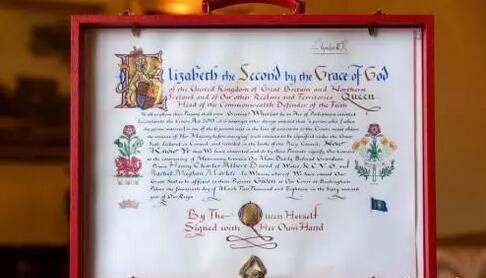 Elizabeth R
Elizabeth the Second by the Grace of God
of the United Kingdom of Great Britain and Northern
Ireland and of Our other Realms and Territories Queen
Head of the Commonwealth Defender of the Faith
To all to whom these Presents shall come Greeting! Whereas by an Act of Parliament entitled
Succession to the Crown Act 2013 it is amongst other things enacted that a person who (when
the person marries) is one of the six persons next in the line of succession to the Crown must obtain
the consent of Her Majesty before marrying such consent to be signified under the Great
Seal declared in Council and recorded in the books of the Privy Council Now
Know Ye that We have consented and do by these Presents signify Our Consent
to the contracting of Matrimony between Our Most Dearly Beloved Grandson
Prince Henry Charles Albert David of Wales K.C.V.O. and
Rachel Meghan Markle In Witness whereof We have caused Our
Great Seal to be affixed to these Presents Given at Our Court at Buckingham
Palace the fourteenth day of March Two Thousand and Eighteen in the sixty seventh
year of Our Reign
By The Queen Herself
Signed with Her Own Hand